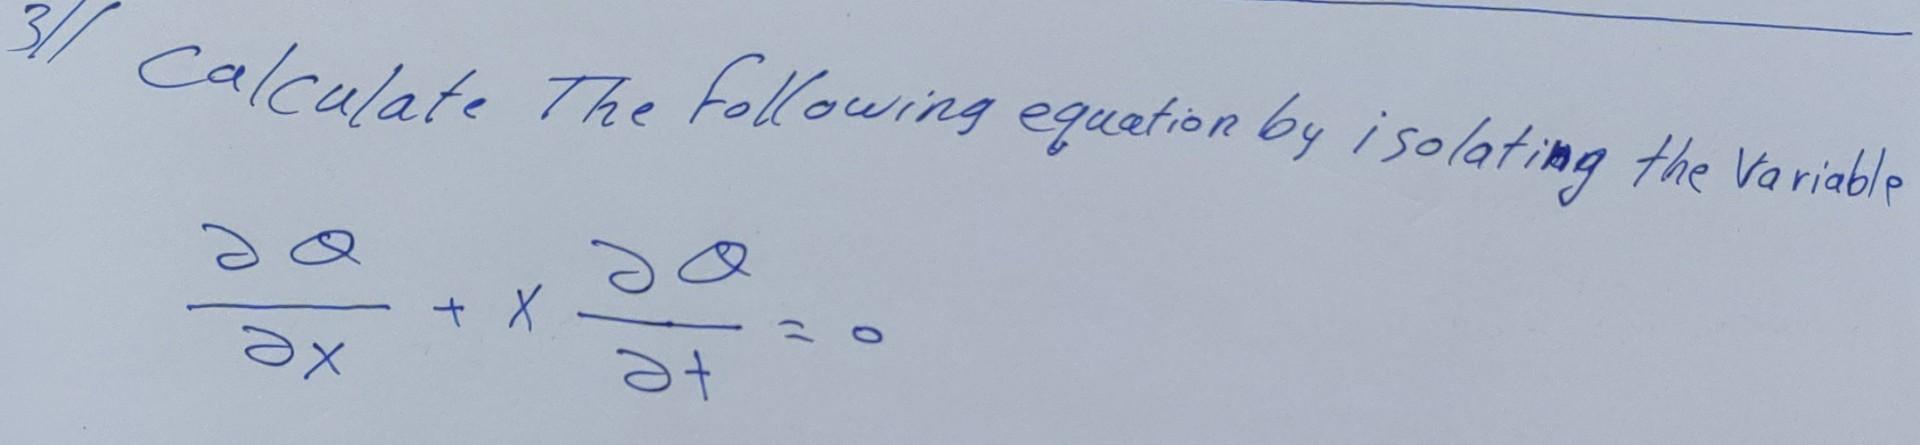 3//
Calculate The following equation by isolating the Variable
∂Q/∂x + x ∂Q/∂t = 0